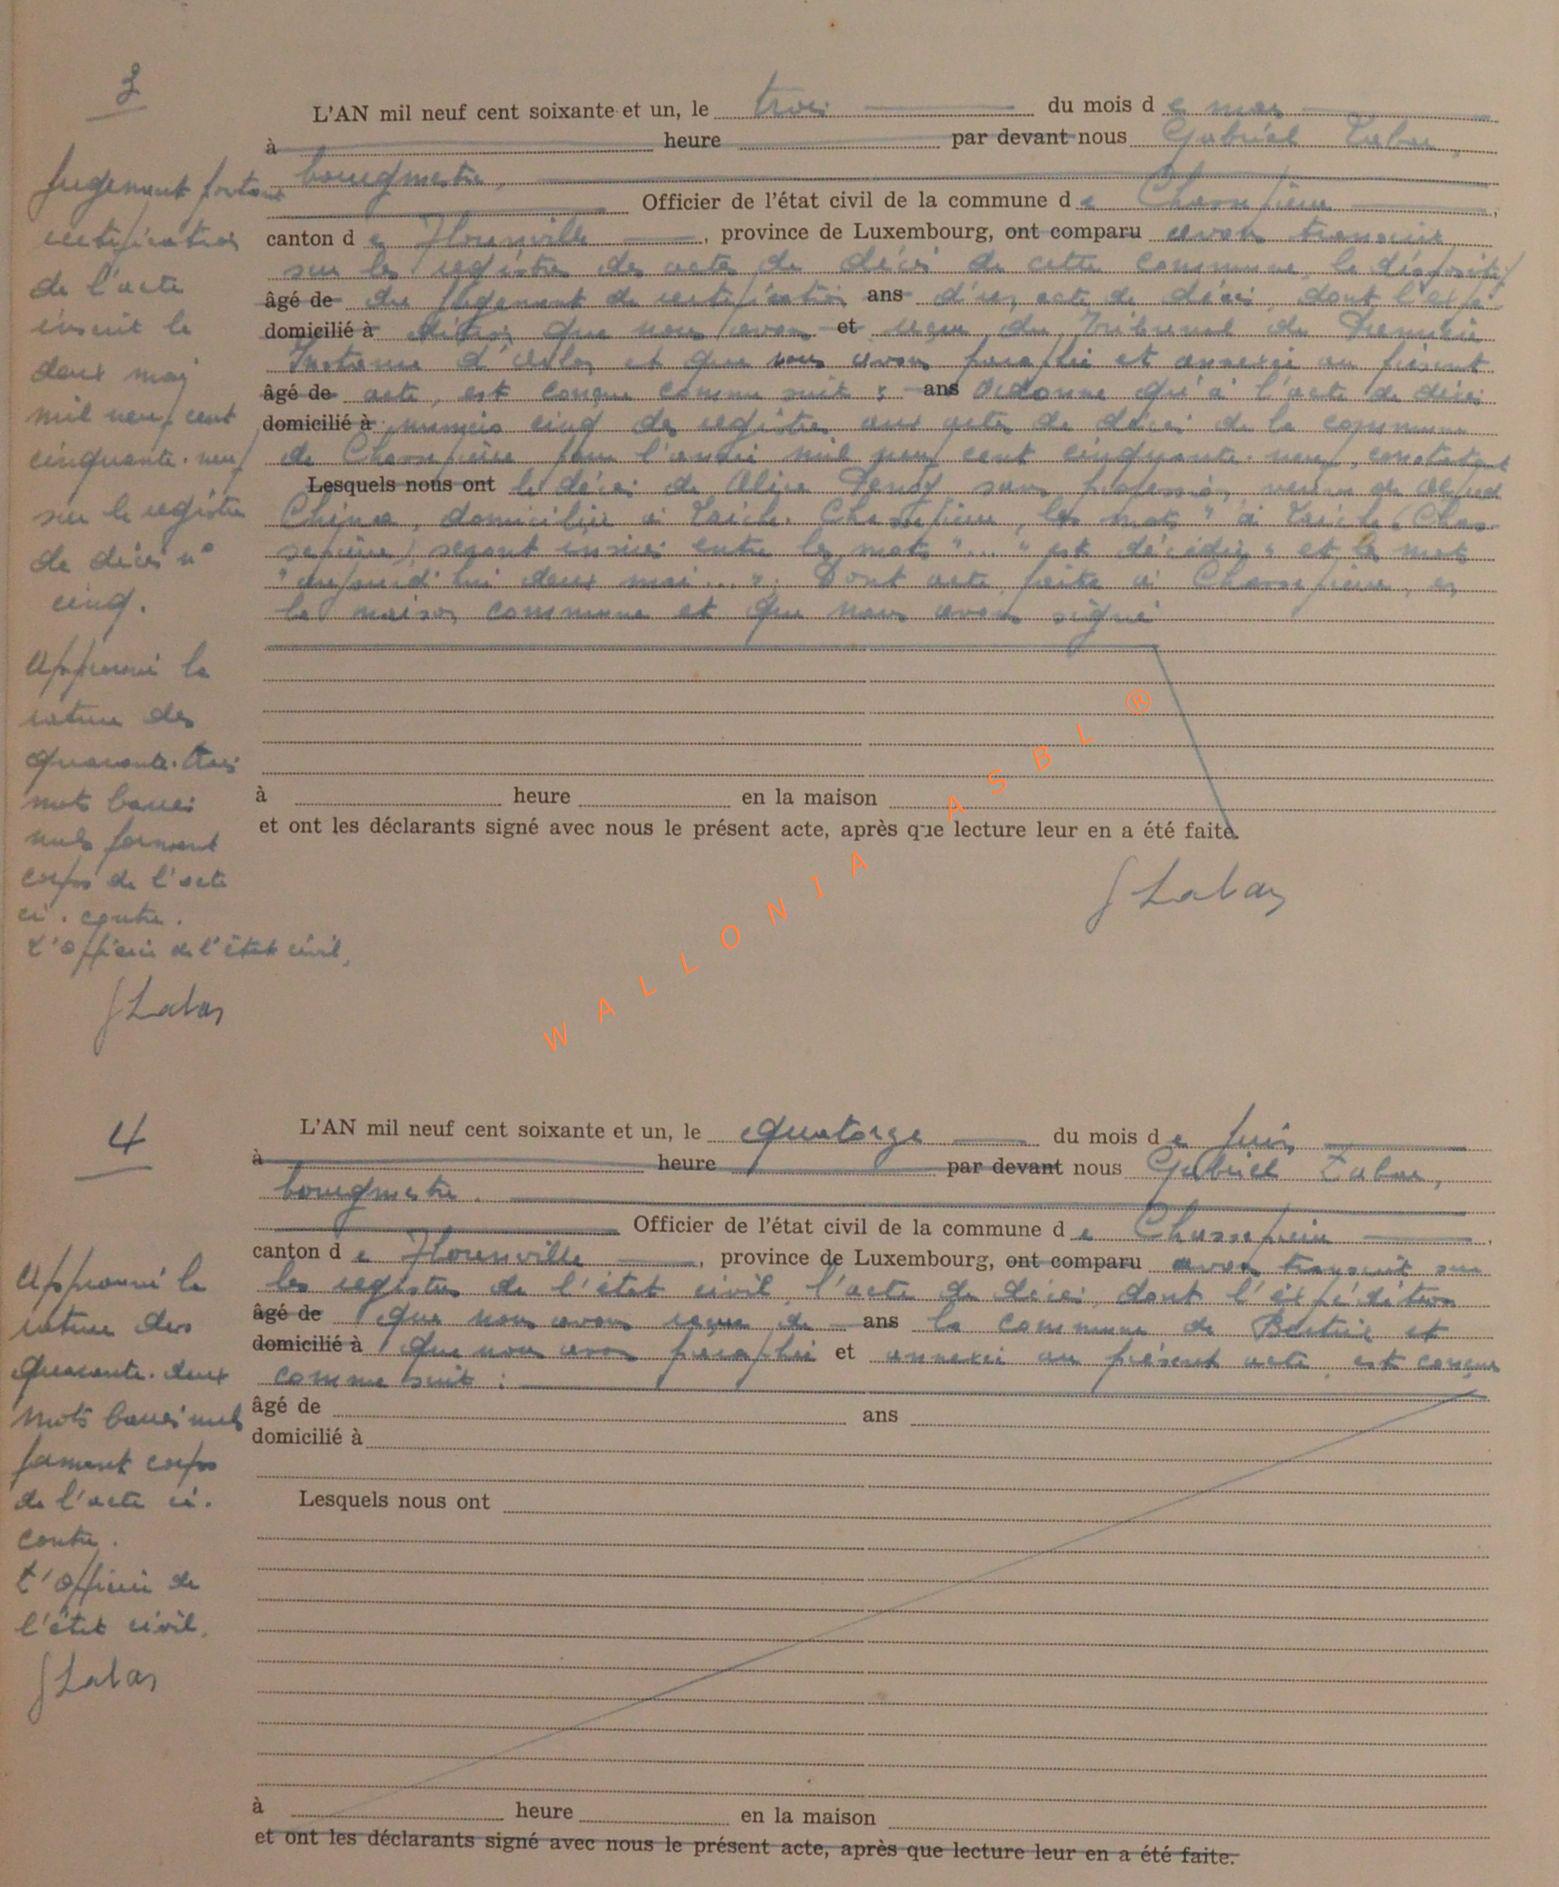 3
L'AN mil neuf cent soixante et un, le trois du mois de mai
à heure par devant nous Gabriel Labar,
bourgmestre,
Officier de l'état civil de la commune de Chassepierre,
canton de Florenville, province de Luxembourg, ont comparu avons transcrit
sur les registres des actes de décès de cette commune, le dispositif
âgé de du jugement de rectification ans d'un acte de décès, dont l'expé-
domicilié à dition que nous avons et reçue du Tribunal de Première
Instance d'Arlon et que nous avons paraphée et annexée au présent
âgé de acte, est conçue comme suit : ans Ordonne qu'à l'acte de décès
domicilié à numéro cinq des registres aux actes de décès de la commune
de Chassepierre pour l'année mil neuf cent cinquante-neuf, constatant
Lesquels nous ont le décès de Alice sans profession, veuve de Alfred
domiciliée à Laiche-Chassepierre, les mots " à Laiche (Chas-
sepierre) seront insérés entre les mots "..." est décédée " et les mots
" aujourd'hui deux mai...". Dont acte, faite à Chassepierre, en
la maison commune et que nous avons signé
à heure en la maison
et ont les déclarants signé avec nous le présent acte, après que lecture leur en a été faite.
G Labar
Jugement portant
rectification
de l'acte
inscrit le
deux mai
mil neuf cent
cinquante-neuf
sur le registre
de décès n°
cinq.
Approuvé la
rature des
quarante-trois
mots barrés
nuls formant
corps de l'acte
ci-contre.
L'Officier de l'état civil,
G Labar
WALLONIA ASBL ®
4
L'AN mil neuf cent soixante et un, le quatorze du mois de juin
à heure par devant nous Gabriel Labar,
bourgmestre.
Officier de l'état civil de la commune de Chassepierre,
canton de Florenville, province de Luxembourg, ont comparu avons transcrit sur
les registres de l'état civil, l'acte de décès, dont l'expédition
âgé de que nous avons reçue de ans la commune de Bertrix et
domicilié à que nous avons paraphée et annexée au présent acte, est conçue
comme suit :
âgé de ans
domicilié à
Lesquels nous ont
à heure en la maison
et ont les déclarants signé avec nous le présent acte, après que lecture leur en a été faite.
Approuvé la
rature des
quarante-deux
mots barrés nuls
formant corps
de l'acte ci-
contre.
L'Officier de
l'état civil,
G Labar